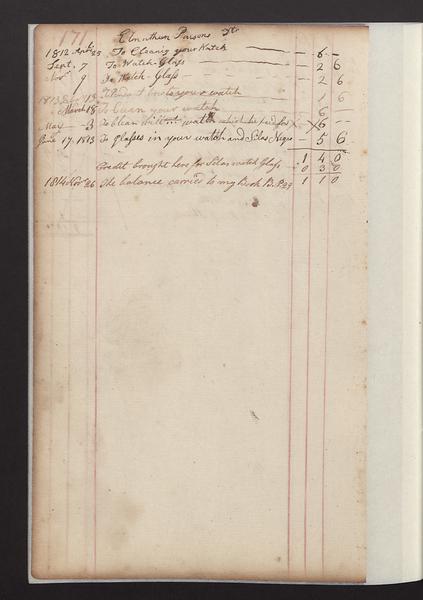 171 Elnathan Parsons Dr
1812 Apl 25 To Cleanig your Watch — 6 —
Sept. 7 To Watch Glass — 2 6
Novr 9 To Watch Glass — 2 6
your watch — 1 6
March 18 To Clean your watch 6 —
May — 3 To Clean watch which he paid for X 6 —
June 17, 1813 To glasses in your watch and Silas Negro 5 6
1 4 0
Credit brought here for Silas watch Glass 0 3 0
1814 Novr 26 The balance carried to my Book B. P 29 1 1 0